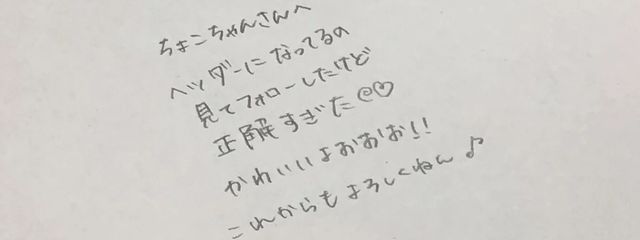 ちょこちゃんさんへ
ヘッダーになってるの
見てフォローしたけど
正解すぎた@♡
かわいいよおおお!!
これからもよろしくねん♪